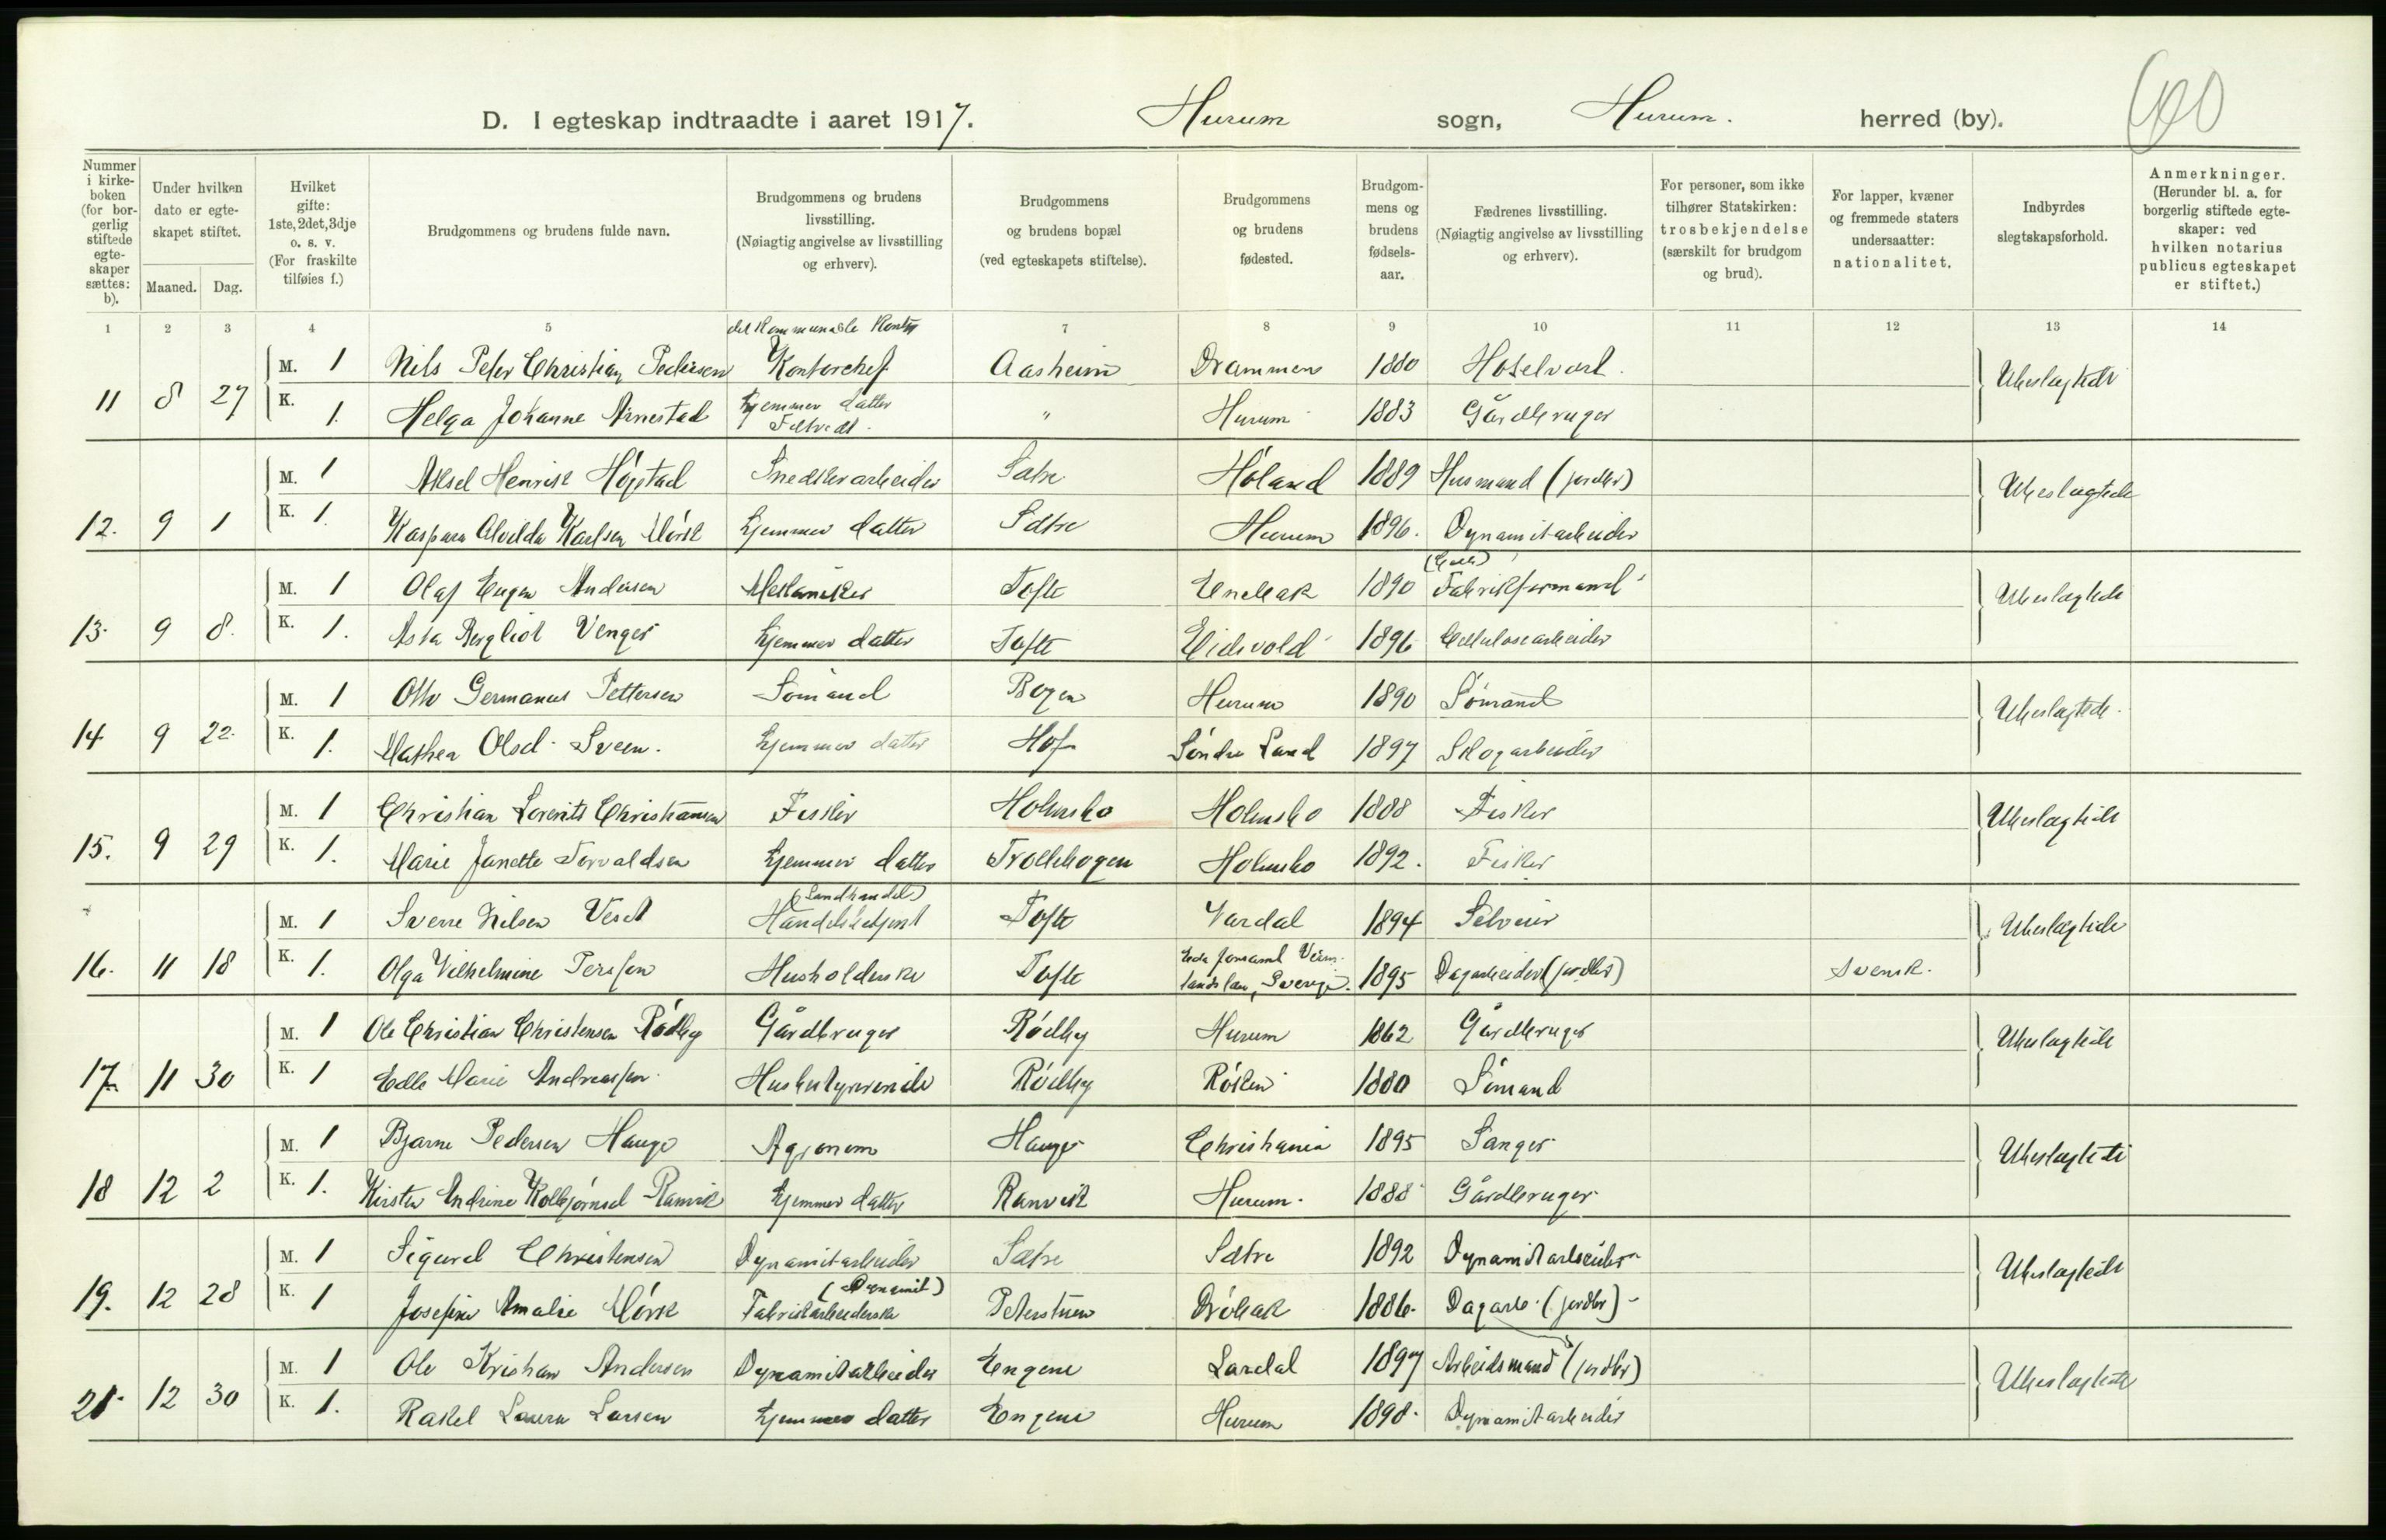 D. I egteskap indtraadte i aaret 1917. Hurum sogn, Hurum. herred (by).
Nummer i kirke-boken (for bor-gerlig stiftede egte-skaper sættes: b).
Under hvilken dato er egte-skapet stiftet.
Maaned. Dag.
Hvilket gifte: 1ste, 2det, 3dje o. s. v. (For fraskilte tilføies f.)
Brudgommens og brudens fulde navn.
Brudgommens og brudens livsstilling. (Nøiagtig angivelse av livsstilling og erhverv).
Brudgommens og brudens bopæl (ved egteskapets stiftelse).
Brudgommens og brudens fødested.
Brudgom-mens og brudens fødsels-aar.
Fædrenes livsstilling. (Nøiagtig angivelse av livsstilling og erhverv).
For personer, som ikke tilhører Statskirken: trosbekjendelse (særskilt for brudgom og brud).
For lapper, kvæner og fremmede staters undersaatter: nationalitet.
Indbyrdes slegtskapsforhold.
Anmerkninger. (Herunder bl. a. for borgerlig stiftede egte-skaper: ved hvilken notarius publicus egteskapet er stiftet.)
1 2 3 4 5 7 8 9 10 11 12 13 14
det kommunale Kontor
M. 1 Nils Peter Christian Pedersen Kontorchef Aasheim Drammen 1880 Hotelvært.
11 8 27 Ubeslægtede
K. 1. Helga Johanne Arnestad hjemmev datter " Hurum 1883 Gårdbruger
Filtvedt.
M. 1 Aksel Henrik Høgstad Snedkerarbeider Sætre Høland 1889 Husmand (jordbr)
12. 9 1 Ubeslægtede
K. 1. Kaspara Alvilda Karlsen Mørk hjemmev datter Sætre Hurum 1896. Dynamitarbeider
M. 1 Olaf Eugen Andersen Mekaniker Tofte Enebak 1890 Fabrikformand
13. 9 8. Ubeslægtede
K. 1. Asta Bergliot Venger hjemmev datter Tofte Eidsvold 1896 Cellulosearbeider
M. 1 Otto Germanus Pettersen Sømand Bogen Hurum 1890 Sømand
14 9 22. Ubeslægtede.
K. 1. Mathea Olsd. Sveen. hjemmev datter Hof Søndre Land 1897 Skogarbeider
M. 1 Christian Lorents Christiansen Fisker Holmsbo Holmsbo 1888 Fisker
15. 9 29 Ubeslægtede
K. 1. Marie Janette Torvaldsen hjemmev datter Trollebogen Holmsbo 1892. Fisker
(Landhandel)
M. 1 Sverre Nilsen Handelsbetjent Tofte Vardal 1894 Selveier
16. 11 18 Ubeslægtede
K. 1. Olga Vilhelmine Persson Husholderske Tofte Eda Verm-landslän, Sverige. 1895 Dagarbeider (jordbr) Svensk.
M. 1 Ole Christian Christensen Rødby Gårdbruger Rødby Hurum 1862 Gårdbruger
17. 11 30 Ubeslægtede
K. 1 Edle Marie Andreassen Husbestyrerinde Rødby Røken 1880 Sømand
M. 1 Bjarne Pedersen Hauge Agronom Hauge Christiania 1895 Sanger
18 12 2 Ubeslægtede
K. 1. Kirsten Andrine Kolbjørnsd Ramvik hjemmev datter Ranvik Hurum. 1888 Gårdbruger
M. 1 Sigurd Christensen Dynamitarbeider Sætre Sætre 1892 Dynamitarbeider
(Dynamit)
19. 12 28 Ubeslægtede
K. 1 Josefine Amalie Mørk Fabrikarbeiderske Peterstuen Drøbak 1886. Dagarb. (jordbr)
M. 1 Ole Kristian Andersen Dynamitarbeider Engene Lardal 1897 Arbeidsmand (jordbr)
21. 12 30 Ubeslægtede
K. 1. Rakel Laura Larsen hjemmev datter Engene Hurum 1898. Dynamitarbeider